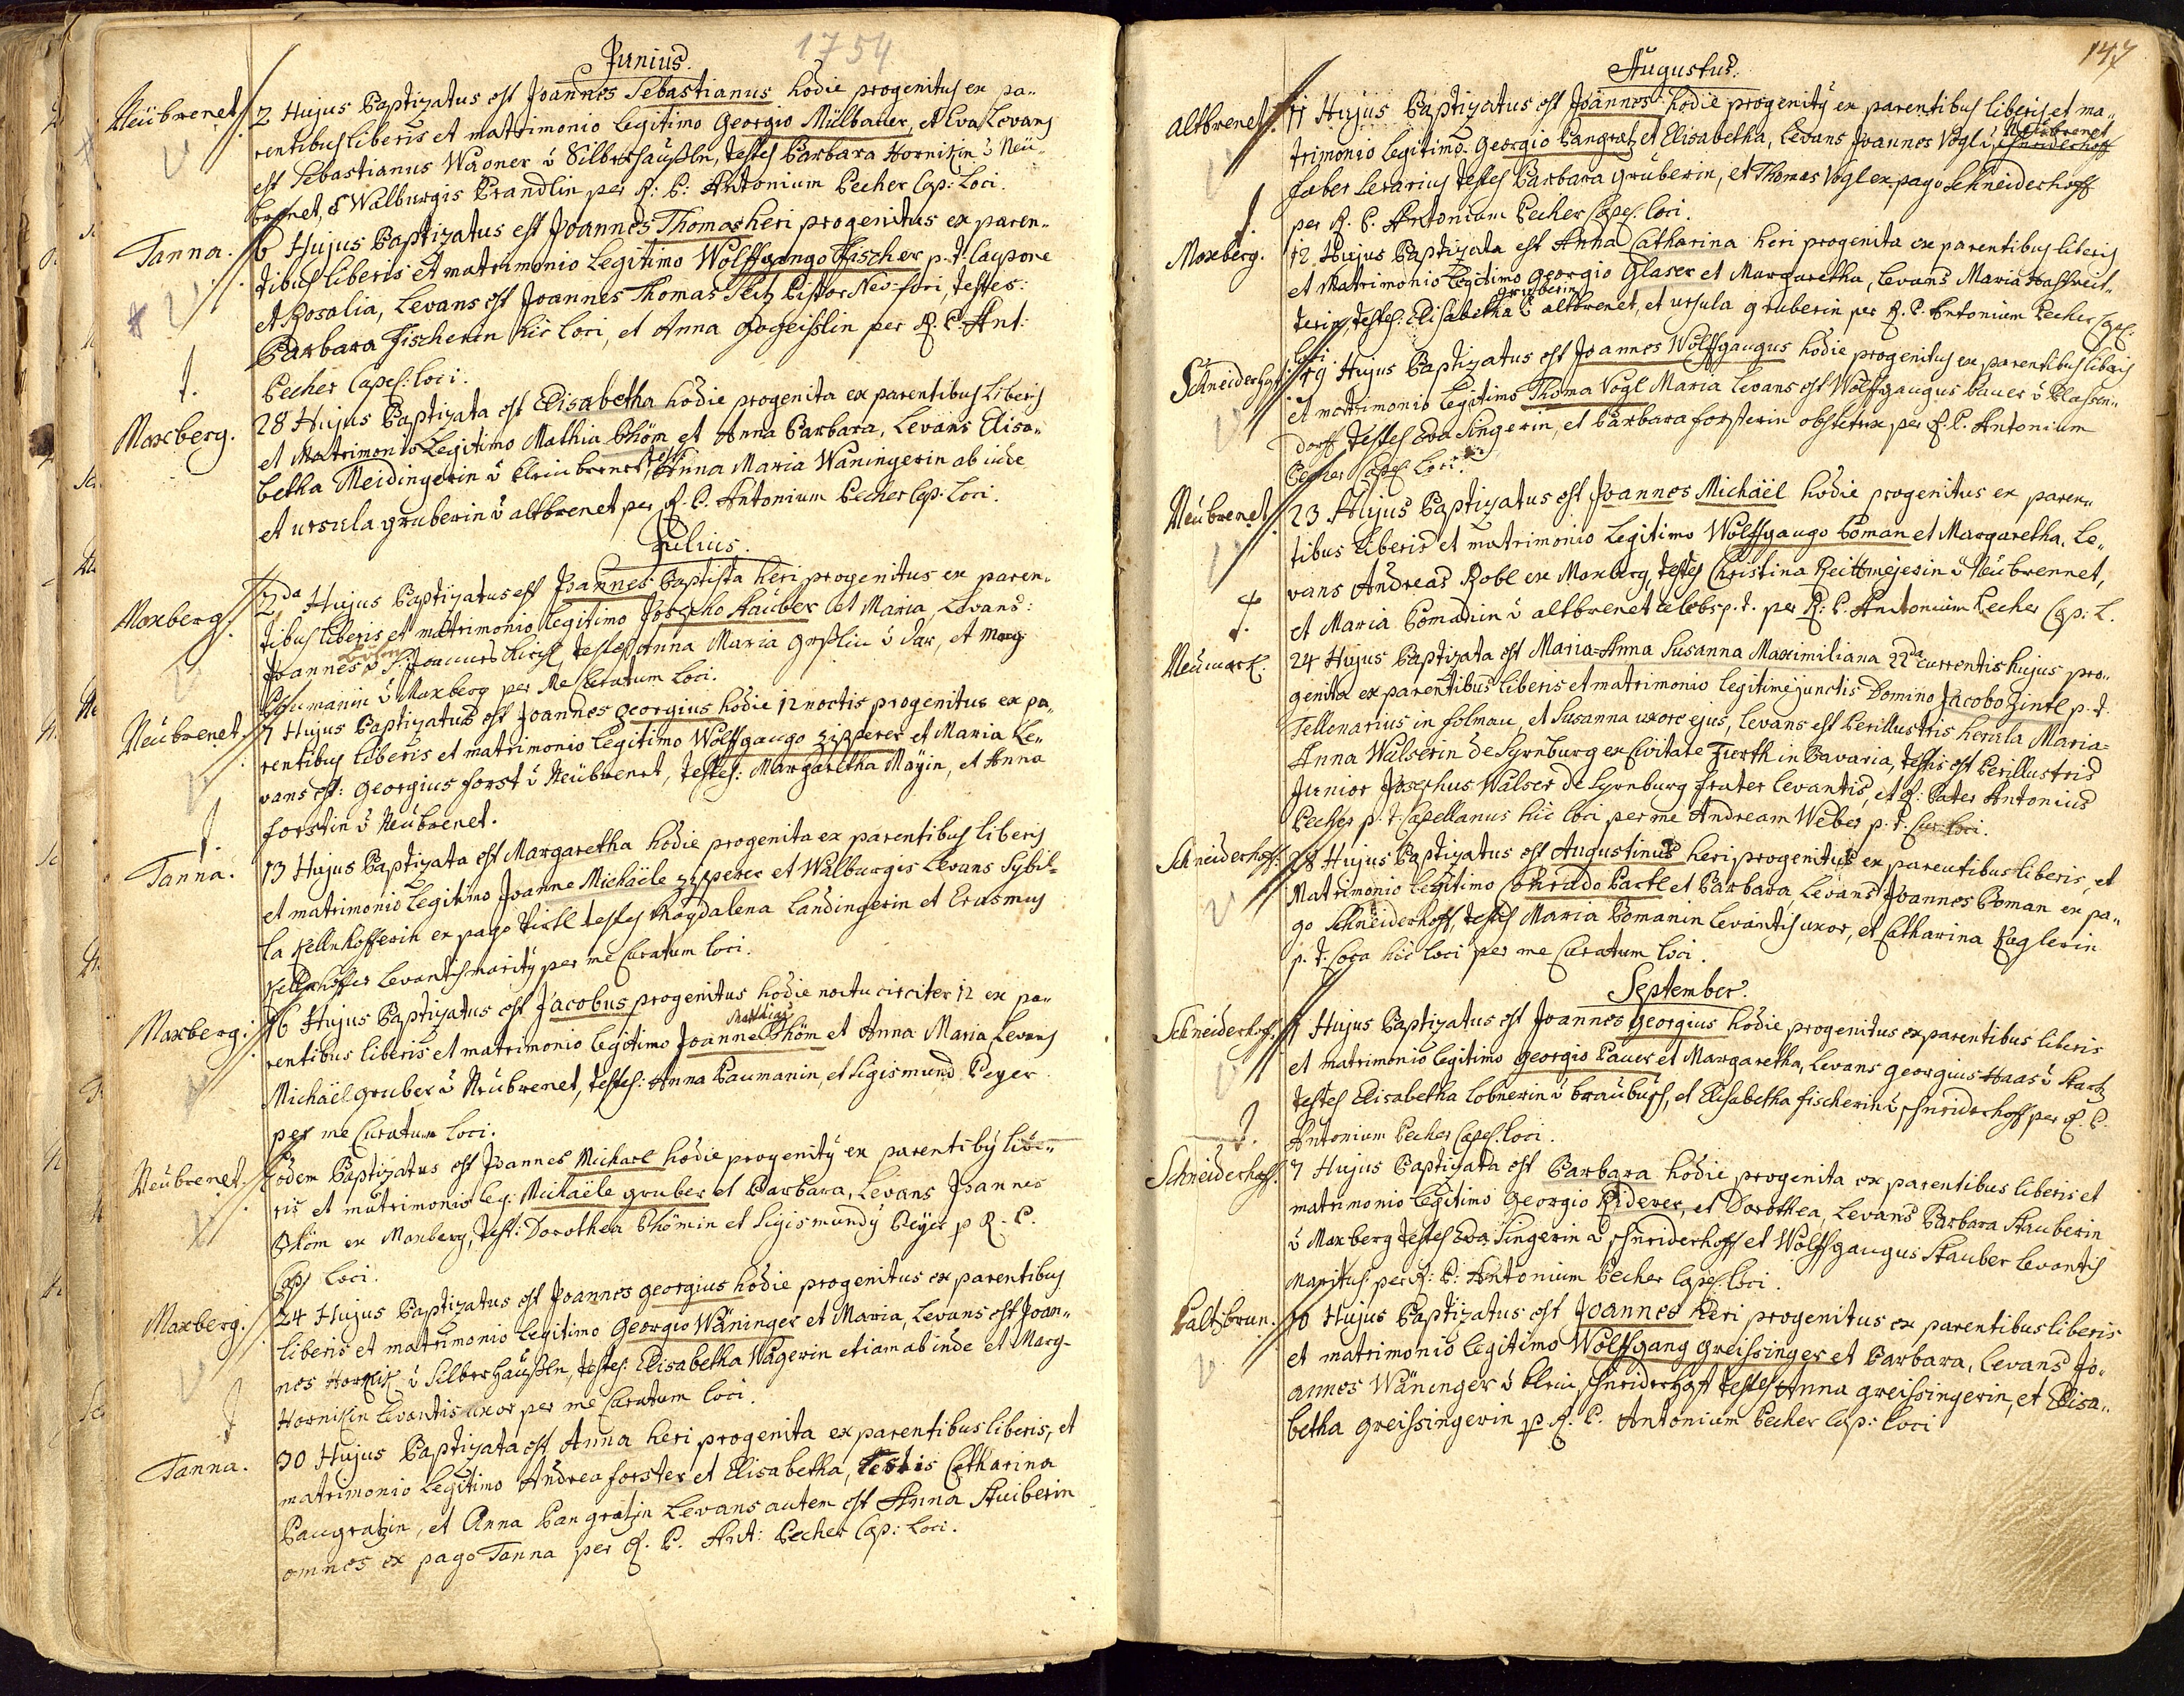 1754
Junius.
Neübrenet 2 Hujus Baptizatus est Joannes Sebastianus hodie progenitus ex pa-
rentibus liberis et matrimonio legitimo Georgio Mülbauer, et Eva Levans
est Sebastianus Wagner ù Silberhäußln, testes Barbara Hornikin ù Neü-
brenet, & Walburgis Brandlin per R: P: Antonium Pecher Cap: Loci.
Tanna. 6 Hujus Baptizatus est Joannes Thomas heri progenitus ex paren-
tibus liberis et matrimonio Legitimo Wolffgango Fischer p. t. Caupone
et Rosalia, Levans est Joannes Thomas Seitz Pistor Neo-fori, testes:
Barbara Fischerin hic loci, et Anna per R. P. Ant:
Pecher Capel: loci.
Maxberg. 28 Hujus Baptizata est Elisabetha hodie progenita ex parentibus Liberis
et Matrimonio Legitimo Mathia Böhm et Anna Barbara, Levans Elisa-
betha Meidingerin ù klein brenet, testes Anna Maria Waningerin ab inde
et ursula gruberin ù altbrenet per R. P. Antonium Pecher Cap: Loci.
Julius.
Maxberg. 2da Hujus Baptizatus est Joannes Baptista heri progenitus ex paren-
tibus liberis et matrimonio legitimo Josepho Stauber et Maria, Levans:
Joannes ù Joannes Kirch, testes Anna Maria ù et Marg
ù Maxberg per Me Curatum Loci.
Neübrenet. 7 Hujus Baptizatus est Joannes georgius hodie 12 noctis progenitus ex pa-
rentibus liberis et matrimonio legitimo Wolffgango Zipperer et Maria Le-
vans est: Georgius forst ù Neübrenet, testes: Margaretha Mayin, et Anna
forstin ù Neübrenet.
Tanna. 13 Hujus Baptizata est Margaretha hodie progenita ex parentibus liberis
et matrimonio legitimo Joanne Michaële Zipperer et Walburgis Levans Sybil-
la Kellnhofferin ex pago testes Magdalena Landingerin et Erasmus
Kellnhoffer Levantis maritus per me Curatum loci.
Maxberg. 16 Hujus Baptizatus est Jacobus progenitus hodie noctu circiter 12 ex pa-
Mathias
rentibus liberis et matrimonio legitimo Joanne Böhm et Anna Maria Levans
Michäel gruber ù Neübrenet, testes: Anna Baumanin, et Sigismund Beyer
per me Curatum loci.
Neübrenet. Eodem Baptizatus est Joannes Michael hodie progenitus ex parentibus libe-
ris et matrimonio leg: Michaële gruber et Barbara, Levans Joannes
Böhm ex Maxberg, test: Dorothea Böhmin et Sigismundus Beyer p R. P.
Cap Loci.
Maxberg. 24 Hujus Baptizatus est Joannes georgius hodie progenitus ex parentibus
liberis et matrimonio legitimo Georgio Wäninger et Maria, Levans est Joan-
nes Hornik ù Silberhäußln, testes: Elisabetha Wagnerin etiam ab inde et Marg-
Hornikin Levantis uxor per me Curatum loci.
Tanna. 30 Hujus Baptizata est Anna heri progenita ex parentibus liberis, et
matrimonio legitimo Andrea forster et Elisabetha, testis Catharina
Pangratzin, et Anna Pangratzin Levans autem est Anna Stuiberin
omnes ex pago Tanna per R. P. Ant: Pecher Cap: Loci.
147
Augustus.
Altbrenet. 11 Hujus Baptizatus est Joannes hodie progenitus ex parentibus liberis et ma-
Neübrenet
trimonio legitimo Georgio Pangratz et Elisabetha, Levans Joannes Vogl ù Schneiderhoff
faber testes Barbara gruberin, et Thomas Vogl ex pago Schneiderhoff
per R. P. Antonium Pecher Capel: loci.
Maxberg. 12 Hujus Baptizata est Anna Catharina heri progenita ex parentibus liberis
et Matrimonio Legitimo Georgio Glaser et Margaretha, Levans Maria
gruberin
testes: Elisabetha ù altbrenet, et ursula gruberin per R. P. Antonium Pecher Capel:
loci.
Schneiderhoff 19 Hujus Baptizatus est Joannes Wolffgangus hodie progenitus ex parentibus liberis
et matrimonio legitimo Thoma Vogl Maria Levans est Wolffgangus Bauer ù
dorff testes Eva Singerin, et Barbara forsterin obstetrix per R. P. Antonium
Pecher Capel: Loci.
Neübrenet 23 Hujus Baptizatus est Joannes Michäel hodie progenitus ex paren-
tibus liberis et matrimonio legitimo Wolffgango Boman et Margaretha, Le-
vans Andreas Robl ex Maxberg, testes Christina Reittmejerin ù Neübrennet,
et Maria Bomanin ù altbrenet p. t. per R: P. Antonium Pecher Cap: L.
Neümarck. 24 Hujus Baptizata est Maria-Anna Susanna Maximiliana 22da currentis hujus pro-
genita ex parentibus liberis et matrimonio legitime junctis Domino Jacobo Zintl p. t.
Tellonarius in folmau, et Susanna uxore ejus, Levans est Perillustris herula Maria-
Anna Walserin de Syrnburg ex Civitate Fürth in Bavaria, testis est Perillustris
Junior Josephus Walser de Syrnburg frater levantis, et R: Pater Antonius
Pecher p. t. Capellanus hic loci per me Andream Weber p. t. Cur: loci.
Schneiderhoff. 28 Hujus Baptizatus est Augustinus heri progenitus ex parentibus liberis, et
Matrimonio legitimo Conrado Bartl et Barbara, Levans Joannes Boman ex pa-
go Schneiderhoff, testes Maria Bomanin Levantis uxor, et Catharina Kuglerin
p. t. Coca hic loci per me Curatum loci.
September.
Schneiderhoff. 1 Hujus Baptizatus est Joannes georgius hodie progenitus ex parentibus liberis
et matrimonio legitimo georgio Bauer et Margaretha, Levans georgius Haas ù
testes Elisabetha Lobnerin ù braübüsch, et Elisabetha fischerin ù schneiderhoff per R. P.
Antonium Pecher Capel: loci.
Schneiderhoff. 7 Hujus Baptizata est Barbara hodie progenita ex parentibus liberis et
matrimonio legitimo Georgio Riderer, et Dorothea, Levans Barbara Stauberin
ù Maxberg testes Eva Singerin ù schneiderhoff et Wolffgangus Stauber Levantis
Maritus per R: P: Antonium Pecher Capel: loci.
Kaltzbrun. 10 Hujus Baptizatus est Joannes heri progenitus ex parentibus liberis
et matrimonio legitimo Wolffgang greissinger et Barbara, Levans Jo-
annes Wäninger ù klein schneiderhoff testes Anna greissingerin, et Elisa-
betha greissingerin p R. P. Antonium Pecher Cap: Loci